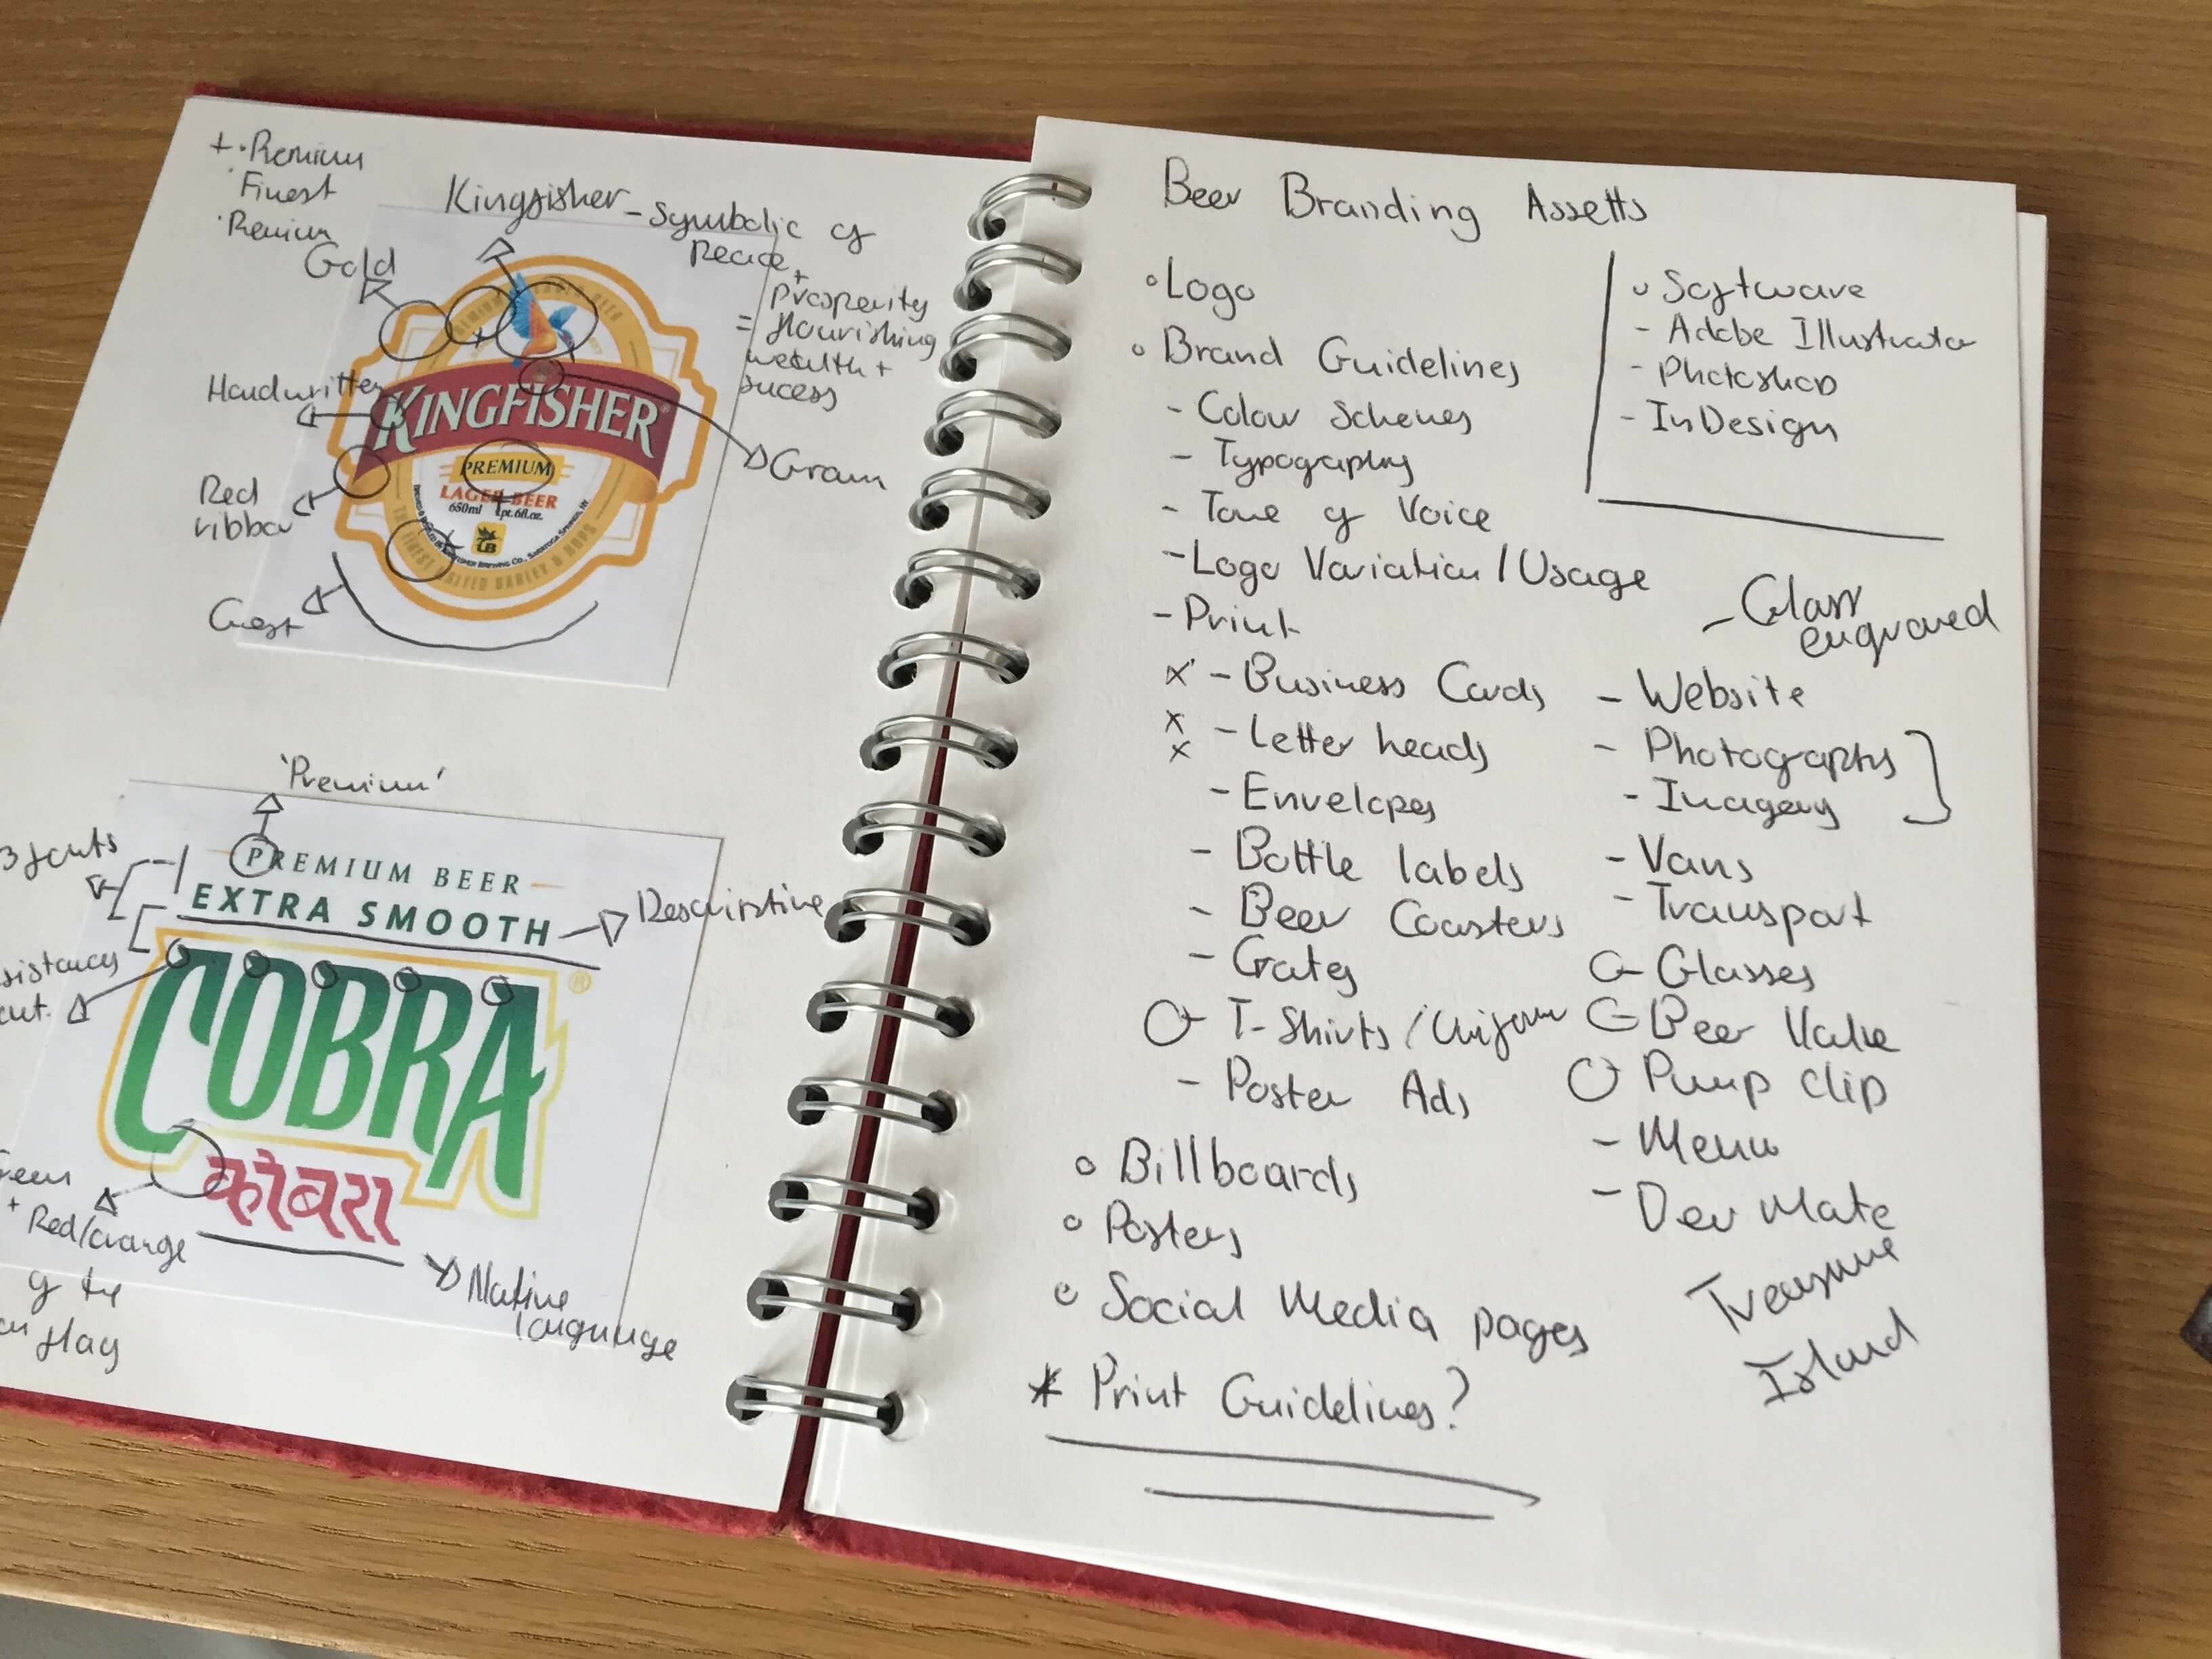 + · Premium
· Finest
· Premium
Gold
Kingfisher - Symbolic of
Peace +
prosperity
= flourishing
wealth +
sucess
Handwritten
Red
ribbon
Crest
Grain
KINGFISHER
PREMIUM
LAGER BEER
650ml 1pt.6fl.oz.
UB
'Premium'
3 fonts
PREMIUM BEER
EXTRA SMOOTH
COBRA
®
कोबरा
+ Red/orange
flag
Native
language
Beer Branding Assetts
° Logo
° Brand Guidelines
- Colour Schemes
- Typography
- Tone of Voice
- Logo Variation / Usage
- Print
x - Business Cards
x - Letter heads
x - Envelopes
- Bottle labels
- Beer Coasters
- Crates
O - T-Shirts / Uniform
- Poster Ads
° Billboards
° Posters
° Social Media pages
* Print Guidelines?
° Software
- Adobe Illustrator
- Photoshop
- InDesign
- Glass
engraved
- Website
- Photography
- Imagery
- Vans
- Transport
O - Glasses
O - Beer
O Pump clip
- Menu
- Dev Mate
Treasure
Island